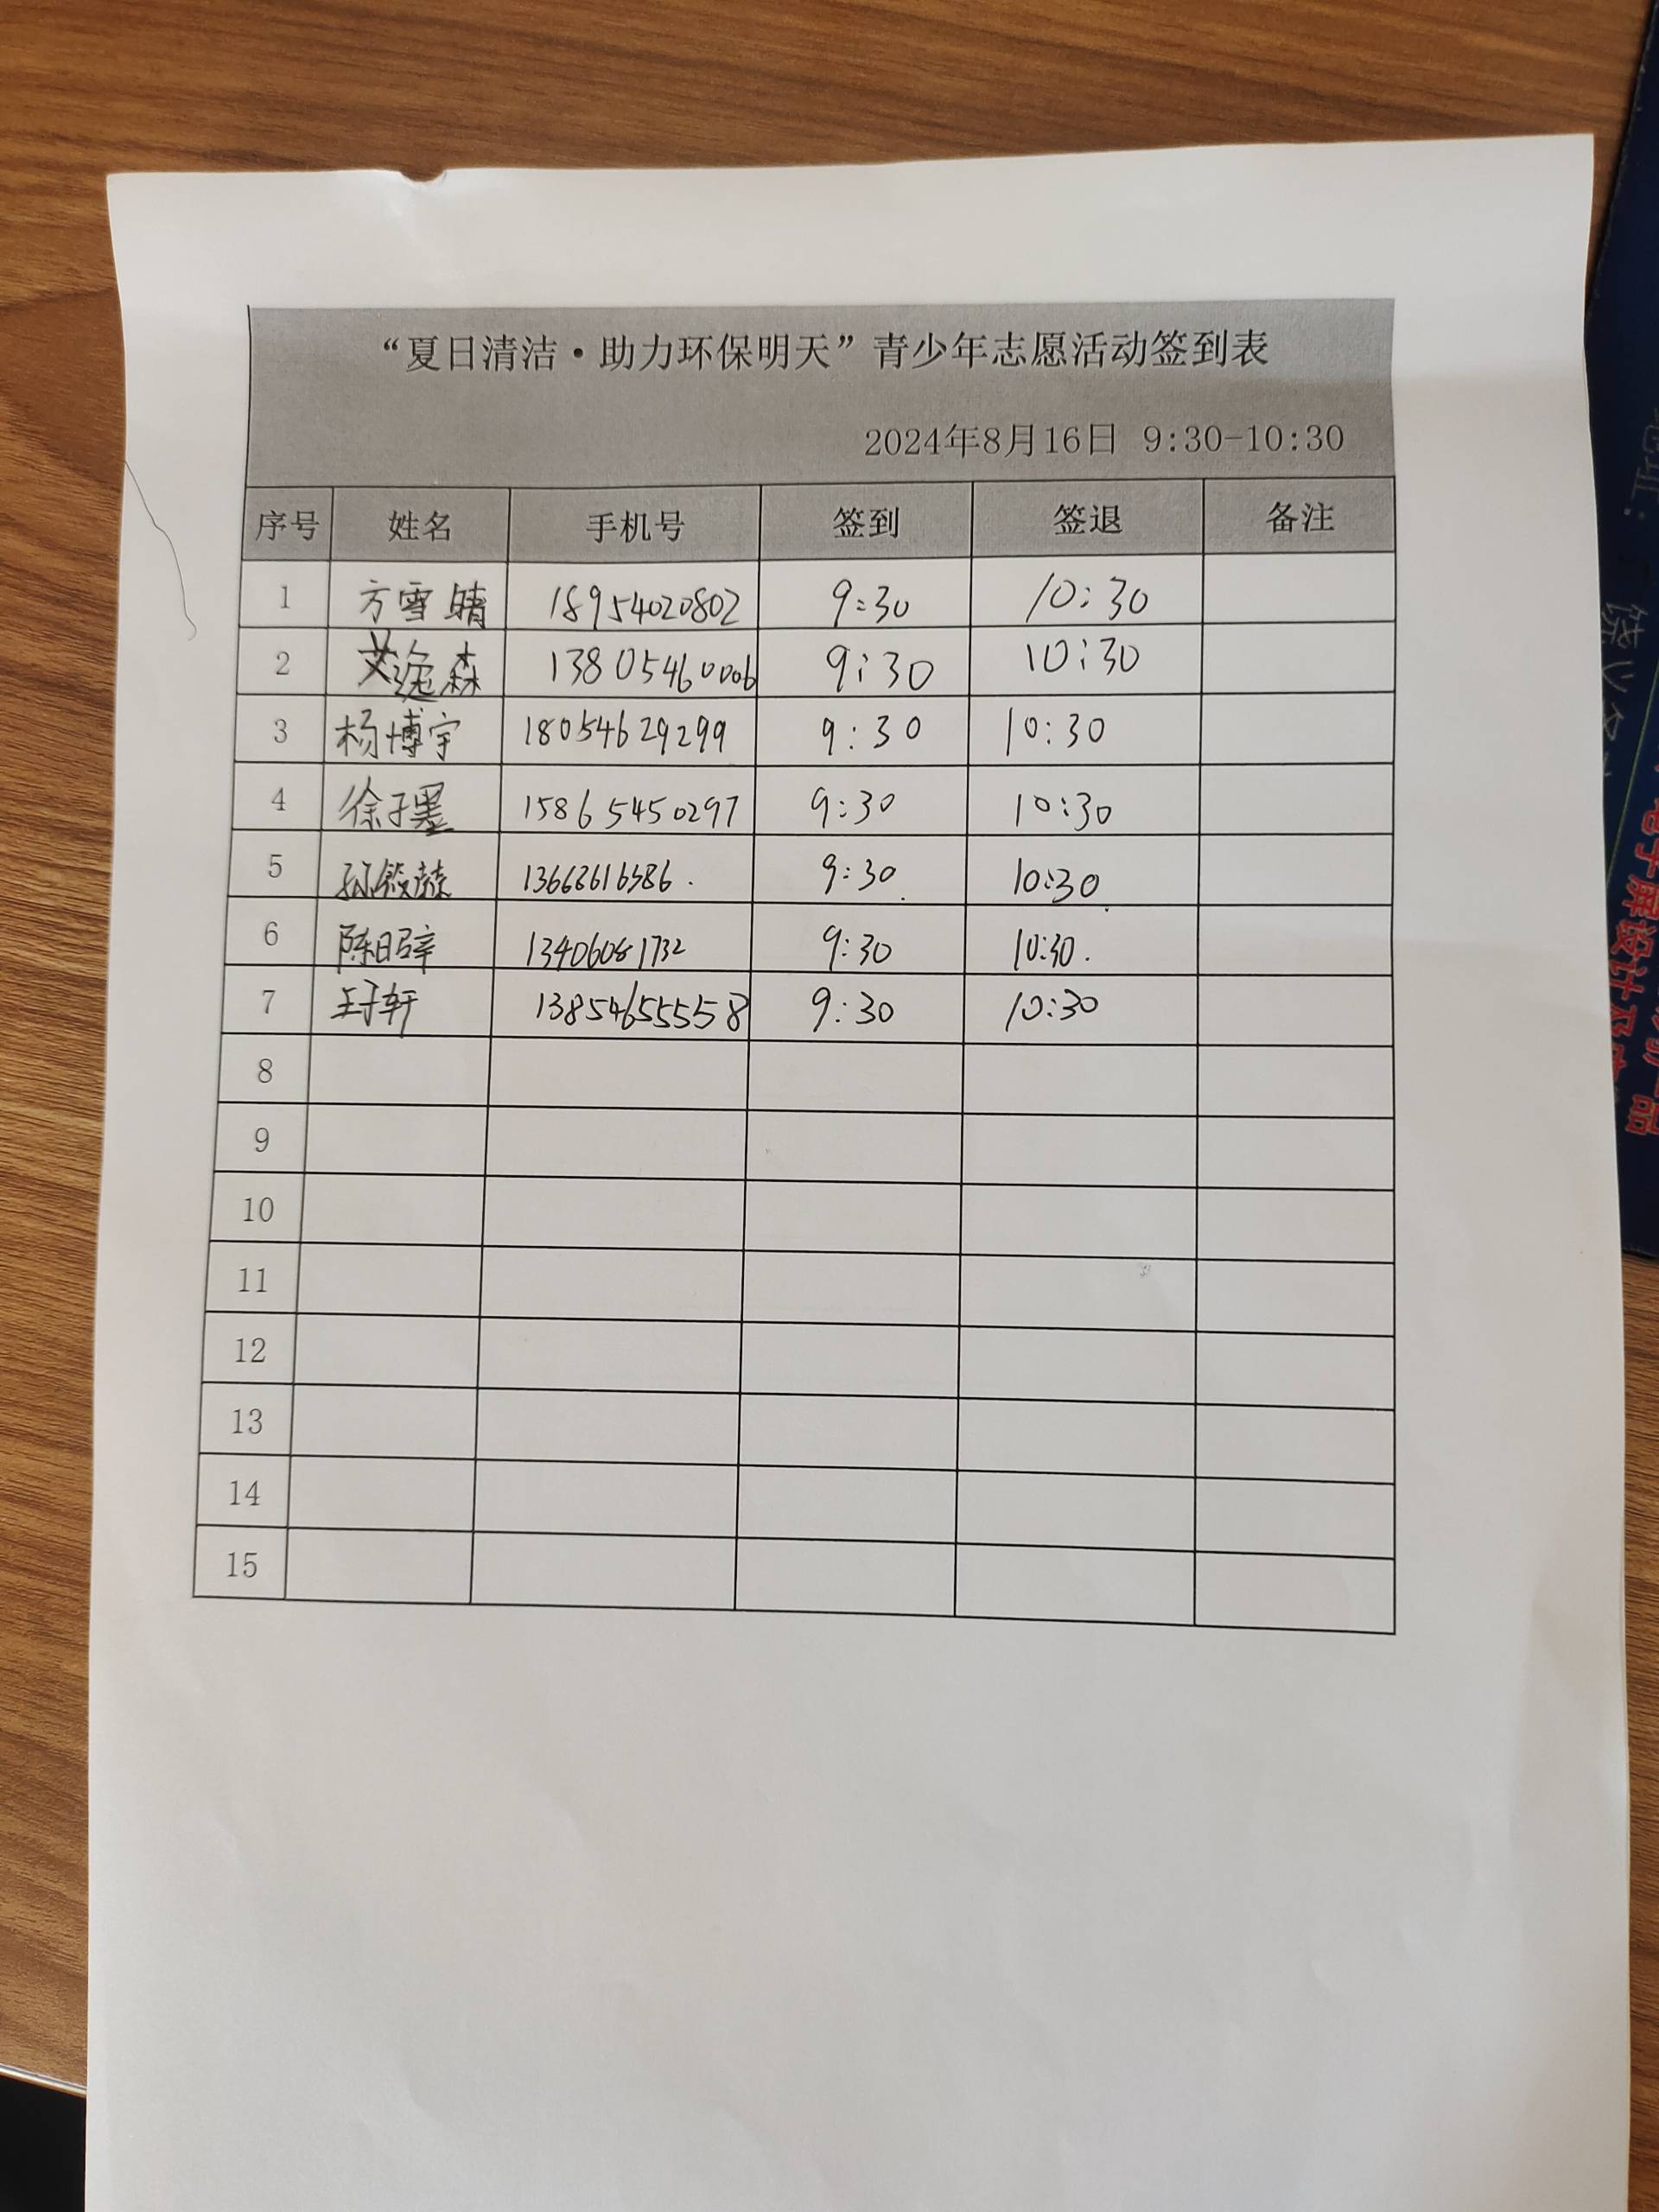 “夏日清洁·助力环保明天”青少年志愿活动签到表
2024年8月16日 9:30-10:30
序号 姓名 手机号 签到 签退 备注
1 方雪晴 18954020802 9:30 10:30
2 艾逸森 13805460006 9:30 10:30
3 杨博宇 18054629299 9:30 10:30
4 徐子墨 15865450297 9:30 10:30
5 孙 9:30 10:30
6 陈 13406081732 9:30 10:30.
7 王子轩 13854655558 9:30 10:30
8
9
10
11
12
13
14
15
电子屏设计及